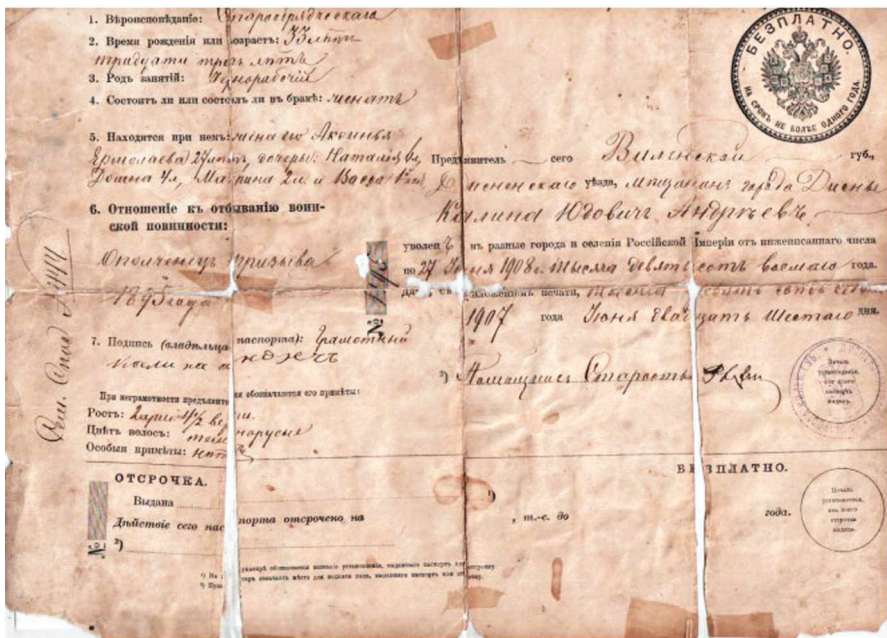 1. Вѣроисповѣданіе: Старообрядческаго
2. Время рожденія или возрастъ: 33 лѣтъ
тридцати трехъ лѣтъ
3. Родъ занятій: Чернорабочій
4. Состоитъ ли или состоялъ ли въ бракѣ: женатъ
5. Находятся при немъ: жена его Аксинья
Ермолаева 27 лѣтъ, дочеры: Наталія
Домна 4 л, Марина 2 л. и Васса
6. Отношеніе къ отбыванію воин-
ской повинности:
Ополченецъ призыва
1895 года
7. Подпись (владѣльца паспорта): Грамотный
При неграмотности предъявителя обозначаются его примѣты:
Ростъ: 2 арш
Цвѣтъ волосъ: темнорусые
Особыя примѣты: нѣтъ
БЕЗПЛАТНО.
НА СРОКЪ НЕ БОЛѢЕ ОДНОГО ГОДА
Предъявитель сего Виленской губ.,
Дисненскаго уѣзда, мѣщанинъ города Дисны
Калина Андреевъ
уволенъ въ разные города и селенія Россійской Имперіи отъ нижеписаннаго числа
по 27 Іюня 1908 г. Тысяча девятьсотъ восьмаго года.
Данъ, съ приложеніемъ печати, тысяча девятьсотъ
1907 года Іюня двадцать шестаго дня.
²) Староста
Печать
установленія,
изъ коего
паспортъ
выданъ.
№ 295
№ 1444
ОТСРОЧКА.
БЕЗПЛАТНО.
Выдана ¹)
Дѣйствіе сего паспорта отсрочено на , т.-е. до года.
²)
№
Печать
установленія,
изъ коего
отсрочка
выдана.